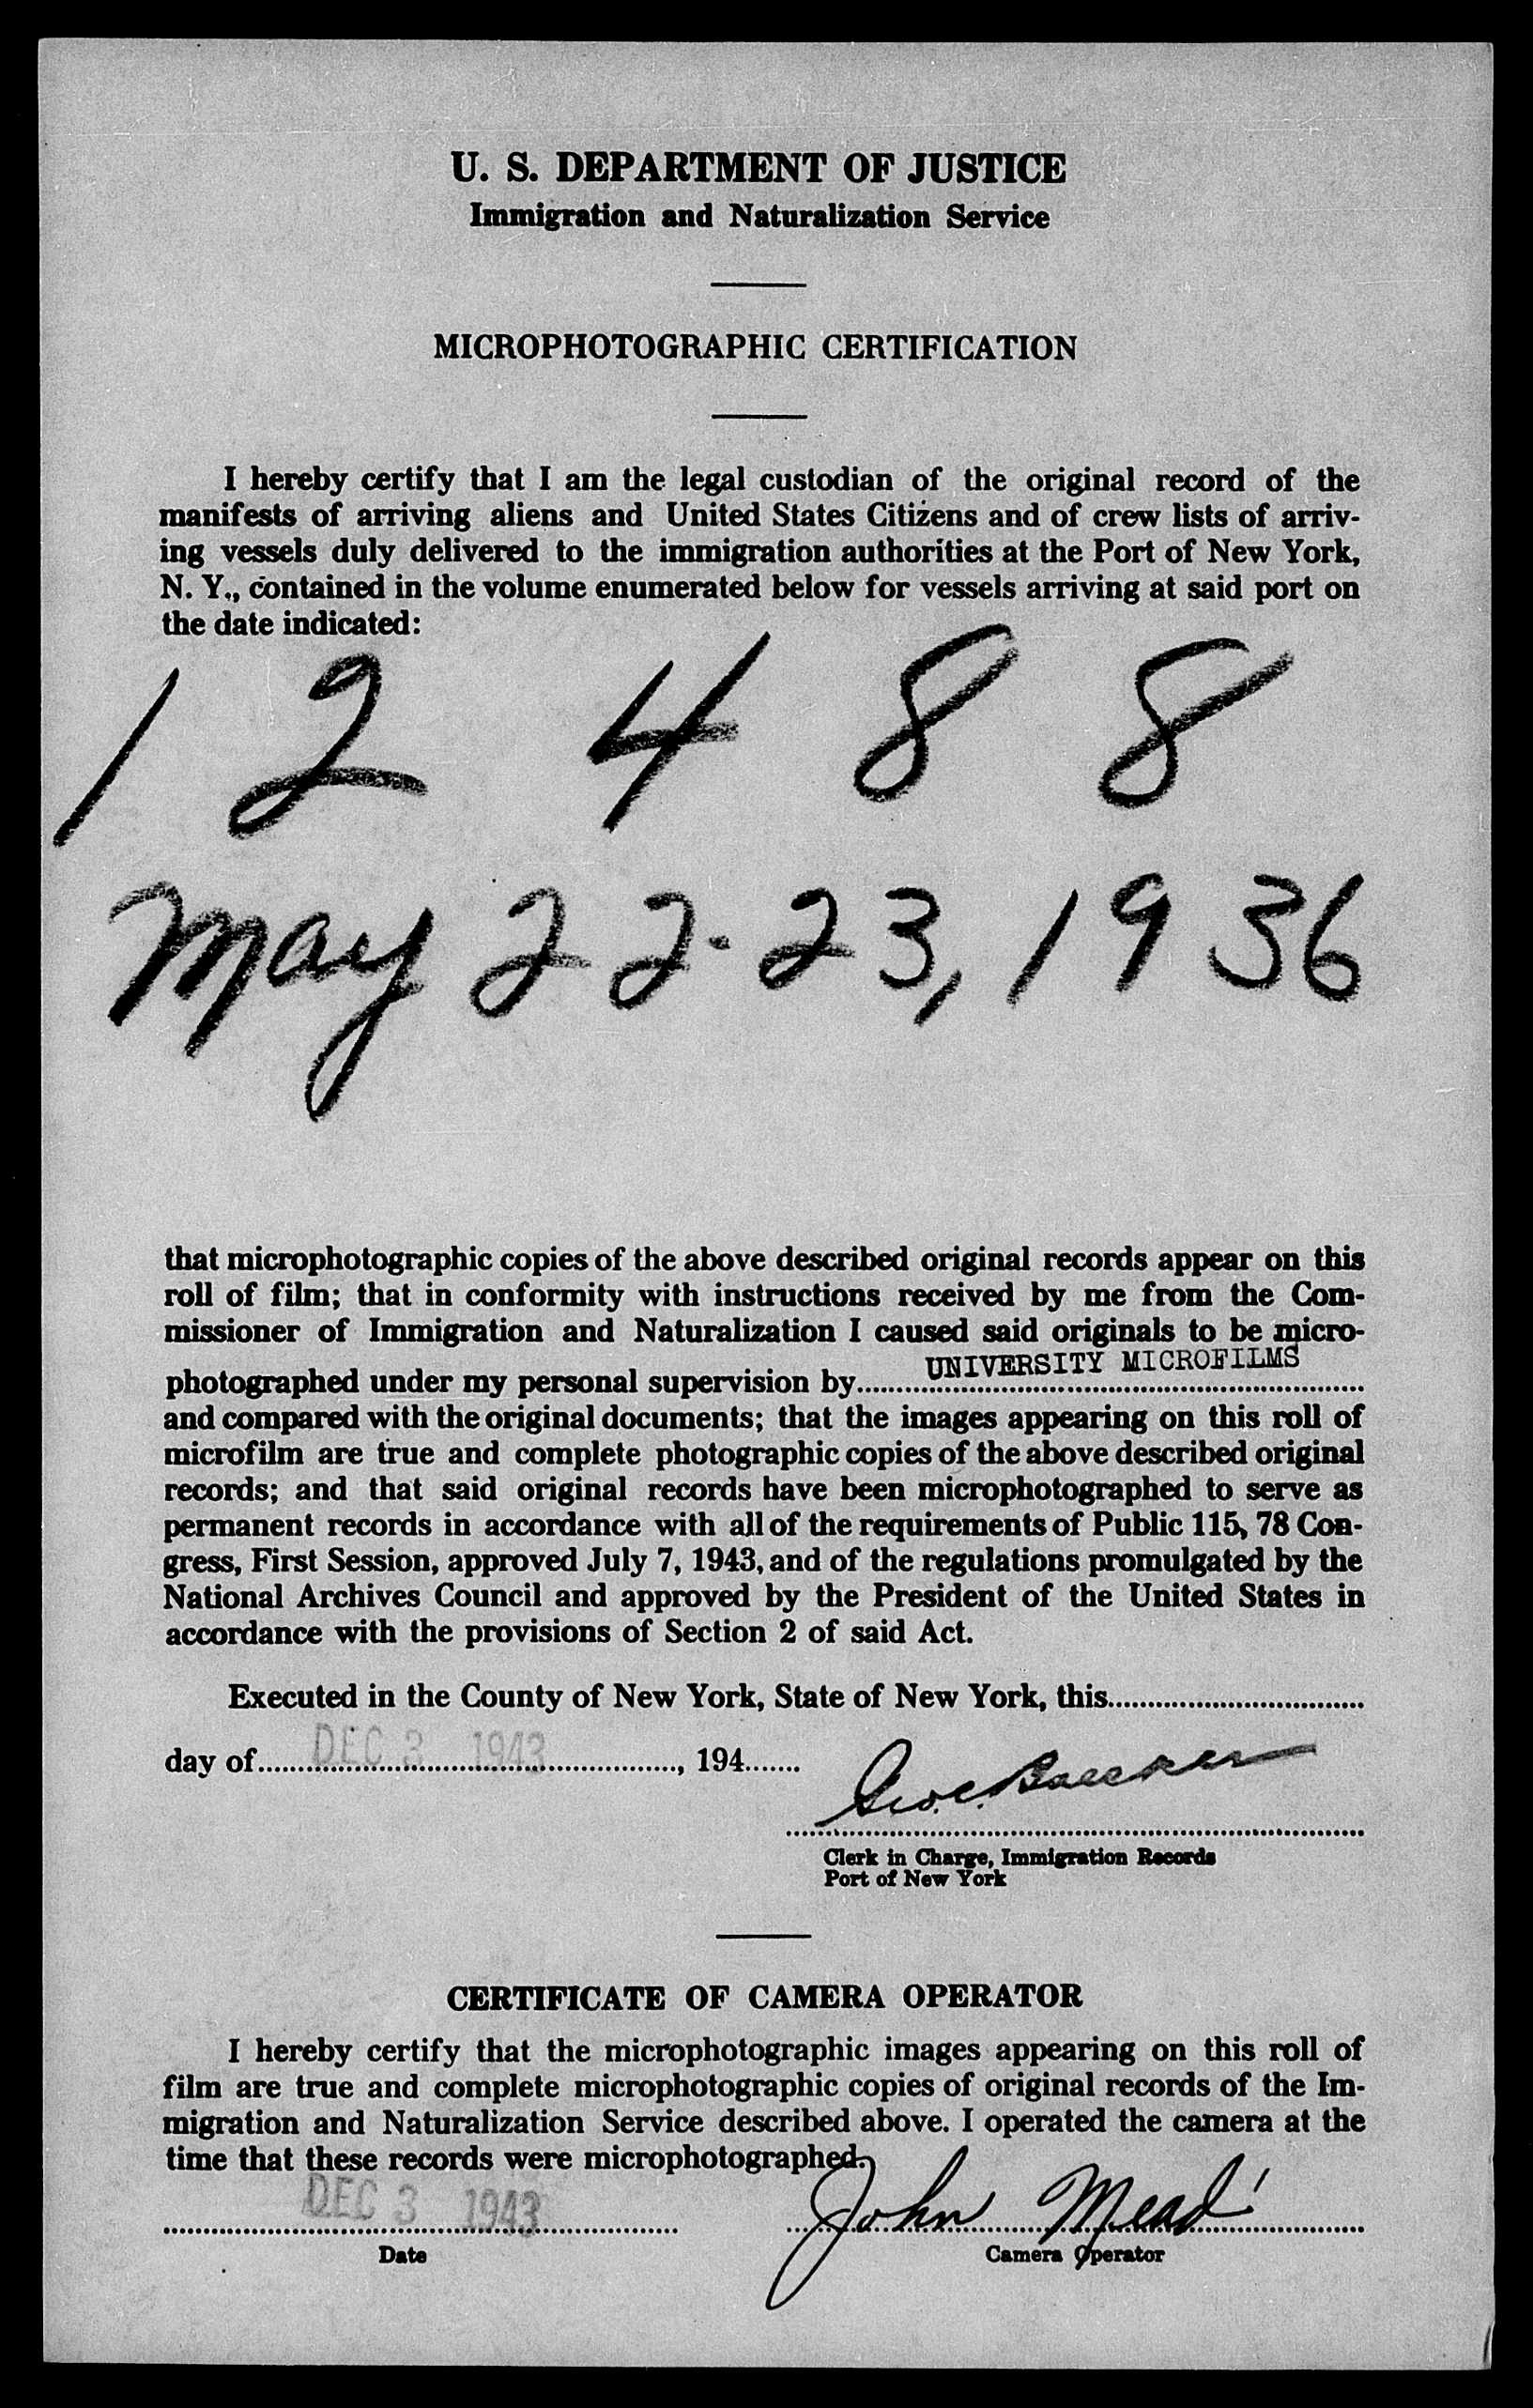 U. S. DEPARTMENT OF JUSTICE
Immigration and Naturalization Service
MICROPHOTOGRAPHIC CERTIFICATION
I hereby certify that I am the legal custodian of the original record of the
manifests of arriving aliens and United States Citizens and of crew lists of arriv-
ing vessels duly delivered to the immigration authorities at the Port of New York,
N. Y., contained in the volume enumerated below for vessels arriving at said port on
the date indicated:
1 2 4 8 8
May 22-23, 1936
that microphotographic copies of the above described original records appear on this
roll of film; that in conformity with instructions received by me from the Com-
missioner of Immigration and Naturalization I caused said originals to be micro-
photographed under my personal supervision by UNIVERSITY MICROFILMS
and compared with the original documents; that the images appearing on this roll of
microfilm are true and complete photographic copies of the above described original
records; and that said original records have been microphotographed to serve as
permanent records in accordance with all of the requirements of Public 115, 78 Con-
gress, First Session, approved July 7, 1943, and of the regulations promulgated by the
National Archives Council and approved by the President of the United States in
accordance with the provisions of Section 2 of said Act.
Executed in the County of New York, State of New York, this
day of DEC 3 1943, 194
Geo. C.
Clerk in Charge, Immigration Records
Port of New York
CERTIFICATE OF CAMERA OPERATOR
I hereby certify that the microphotographic images appearing on this roll of
film are true and complete microphotographic copies of original records of the Im-
migration and Naturalization Service described above. I operated the camera at the
time that these records were microphotographed.
DEC 3 1943 John Mead
Date Camera Operator